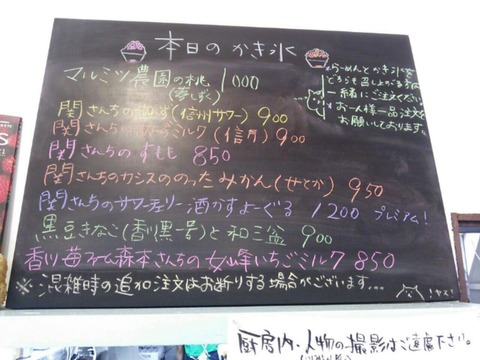 本日のかき氷
マルミツ農園の桃 1000
(夢しずく)
関さんちの あんず(信州サワー) 900
関さんちの あんずミルク(信月) 900
関さんちの すもも 850
関さんちの カシスののったみかん(せとか) 950
関さんちの サワーチェリー酒かすよーぐる 1200 プレミアム!
黒豆きなこ(香川黒一号)と和三盆 900
香川苺ファーム森本さんちの女峰いちごミルク 850
※混雑時の追加注文はお断りする場合がございます…
らーめんとかき氷
どちらも召し上がる方
一緒にご注文ください
お一人様一品注文を
お願いしております。
厨房内・人物の撮影はご遠慮下さい。